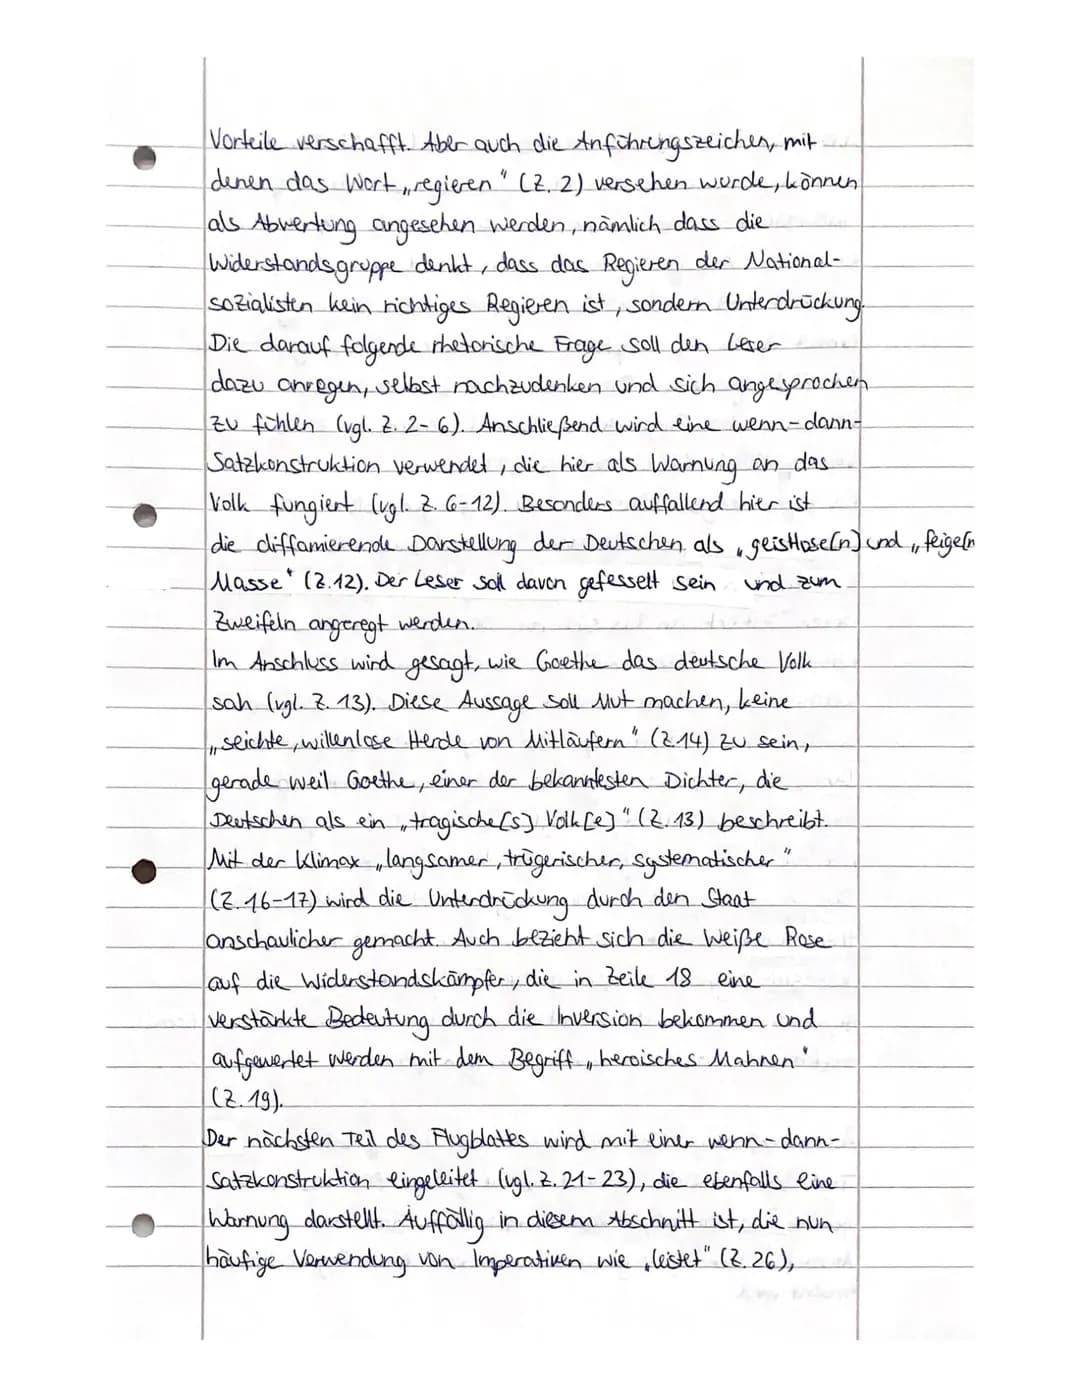 Vorteile verschafft. Aber auch die Anführungszeichen, mit
denen das Wort „regieren" (Z. 2) versehen wurde, können
als Abwertung angesehen werden, nämlich dass die
Widerstandsgruppe denkt, dass das Regieren der National-
sozialisten kein richtiges Regieren ist, sondern Unterdrückung.
Die darauf folgende rhetorische Frage soll den Leser
dazu anregen, selbst nachzudenken und sich angesprochen
zu fühlen (vgl. Z. 2-6). Anschließend wird eine wenn-dann-
Satzkonstruktion verwendet, die hier als Warnung an das
Volk fungiert (vgl. Z. 6-12). Besonders auffallend hier ist
die diffamierende Darstellung der Deutschen als „geistlose[n] und „feige[n
Masse" (Z.12). Der Leser soll davon gefesselt sein und zum
Zweifeln angeregt werden.
Im Anschluss wird gesagt, wie Goethe das deutsche Volk
sah (vgl. Z. 13). Diese Aussage soll Mut machen, keine
„seichte, willenlose Herde von Mitläufern" (Z.14) zu sein,
gerade weil Goethe, einer der bekanntesten Dichter, die
Deutschen als ein „tragische[s] Volk[e]" (Z. 13) beschreibt.
Mit der Klimax „langsamer, trügerischer, systematischer"
(Z. 16-17) wird die Unterdrückung durch den Staat
anschaulicher gemacht. Auch bezieht sich die Weiße Rose
auf die Widerstandskämpfer, die in Zeile 18 eine
verstärkte Bedeutung durch die Inversion bekommen und
aufgewertet werden mit dem Begriff „heroisches Mahnen"
(Z. 19).
Der nächsten Teil des Flugblattes wird mit einer wenn-dann-
Satzkonstruktion eingeleitet (vgl. Z. 21-23), die ebenfalls eine
Warnung darstellt. Auffällig in diesem Abschnitt ist, die nun
häufige Verwendung von Imperativen wie „leistet" (Z. 26),